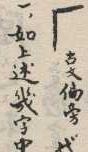 厂 古文偏旁
一、如上述幾字中